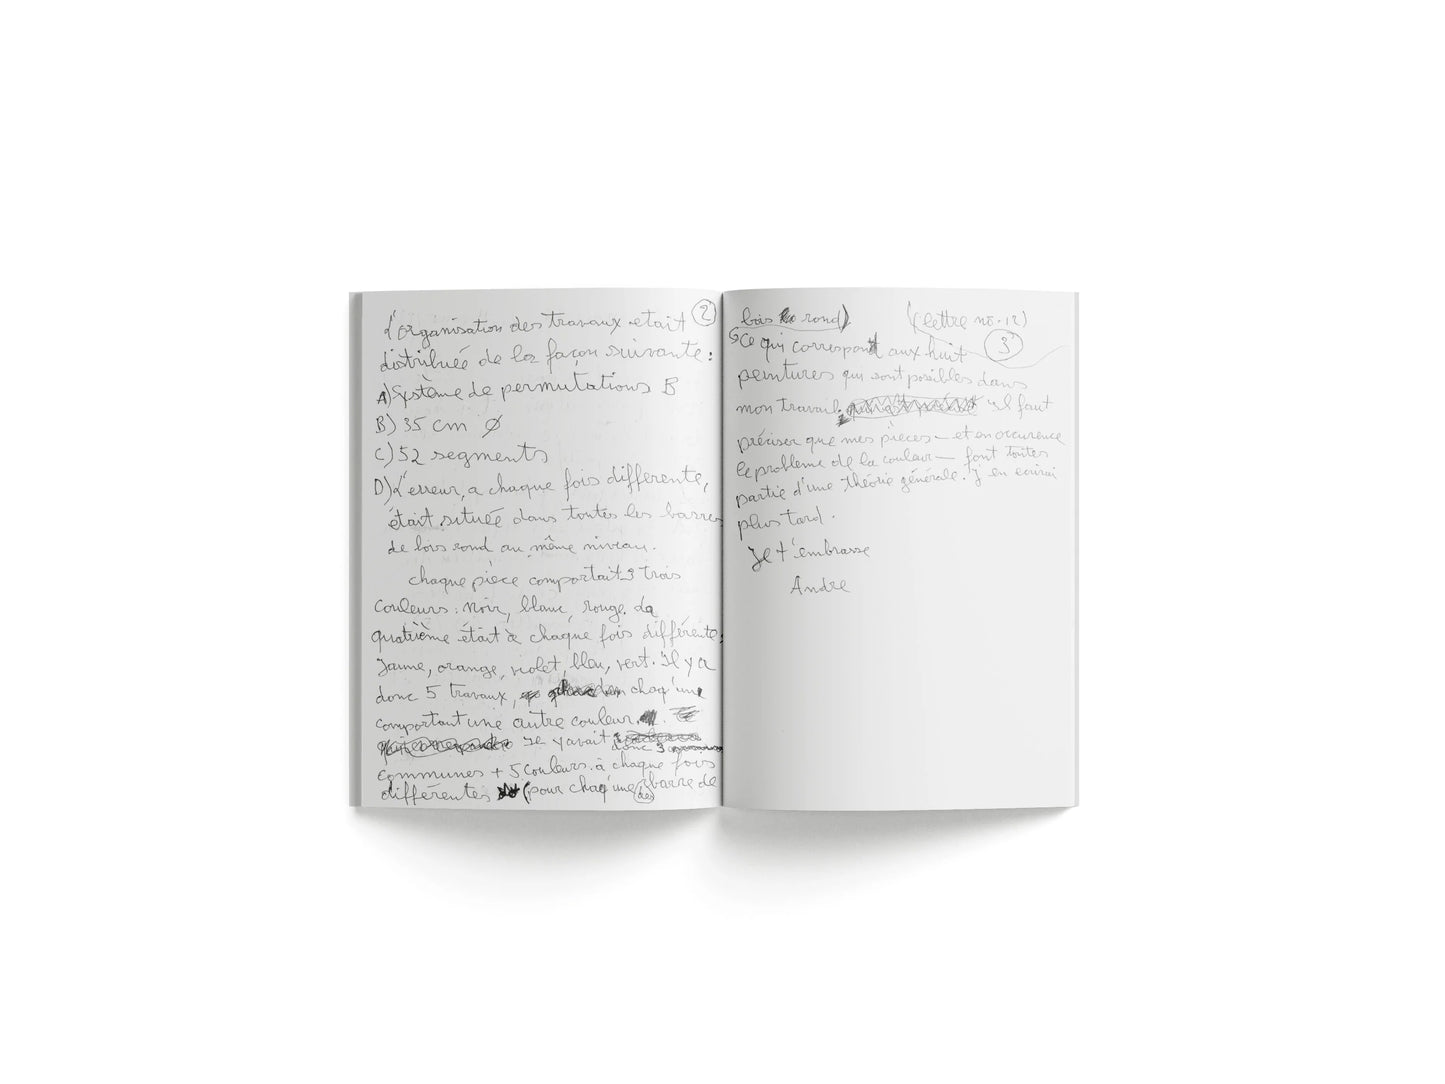 L'organisation des travaux etait 2
distribuée de la façon suivante :
A) Système de permutations B
B) 35 cm Ø
C) 52 segments
D) L'erreur, a chaque fois differente,
était située dans toutes les barres
de bois rond au même niveau.
chaque pièce comportait 3 trois
couleurs : noir, blanc, rouge. La
quatrième était à chaque fois différente :
Jaune, orange, violet, bleu, vert. Il y a
donc 5 travaux, chaq'une
comportant une autre couleur.
Il y avait donc 3
communes + 5 couleurs à chaque fois
différentes (pour chaq'une des barre de
bois rond) (lettre no. 12)
Ce qui correspont aux huit 3
peintures qui sont possibles dans
mon travail. Il faut
préciser que mes pièces — et en occurence
le probleme de la couleur — font toutes
partie d'une théorie générale. J'en ecrirai
plus tard.
Je t'embrasse
Andre